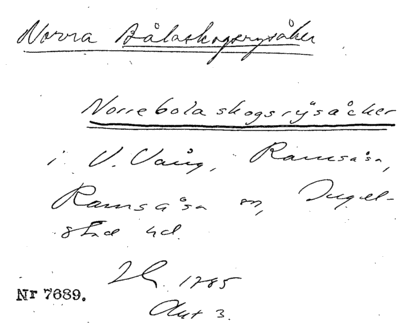 Norra Bålaskogsrysåker
Norrebola skogsrysåcker
i V. Vång, Ramsåsa,
Ramsåsa sn, Ingel-
stad hd.
1785
Akt 3.
Nr 7689.